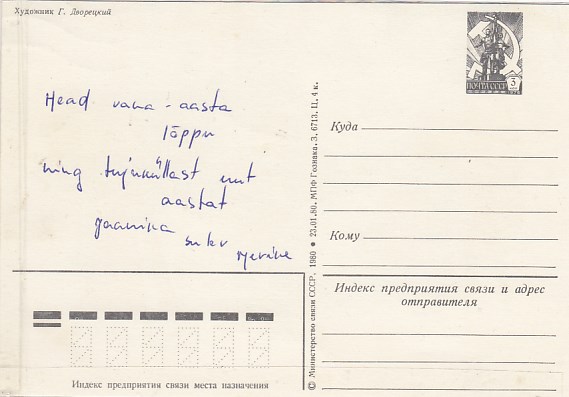 Художник Г. Дворецкий
Head vana-aasta
lõppu
ning tujuküllast uut
aastat
Jaanika
ПОЧТА СССР
3
Куда
Кому
Индекс предприятия связи и адрес
отправителя
© Министерство связи СССР. 1980 ● 23.01.80. МПФ Гознака. З. 6713. Ц. 4 к.
Индекс предприятия связи места назначения